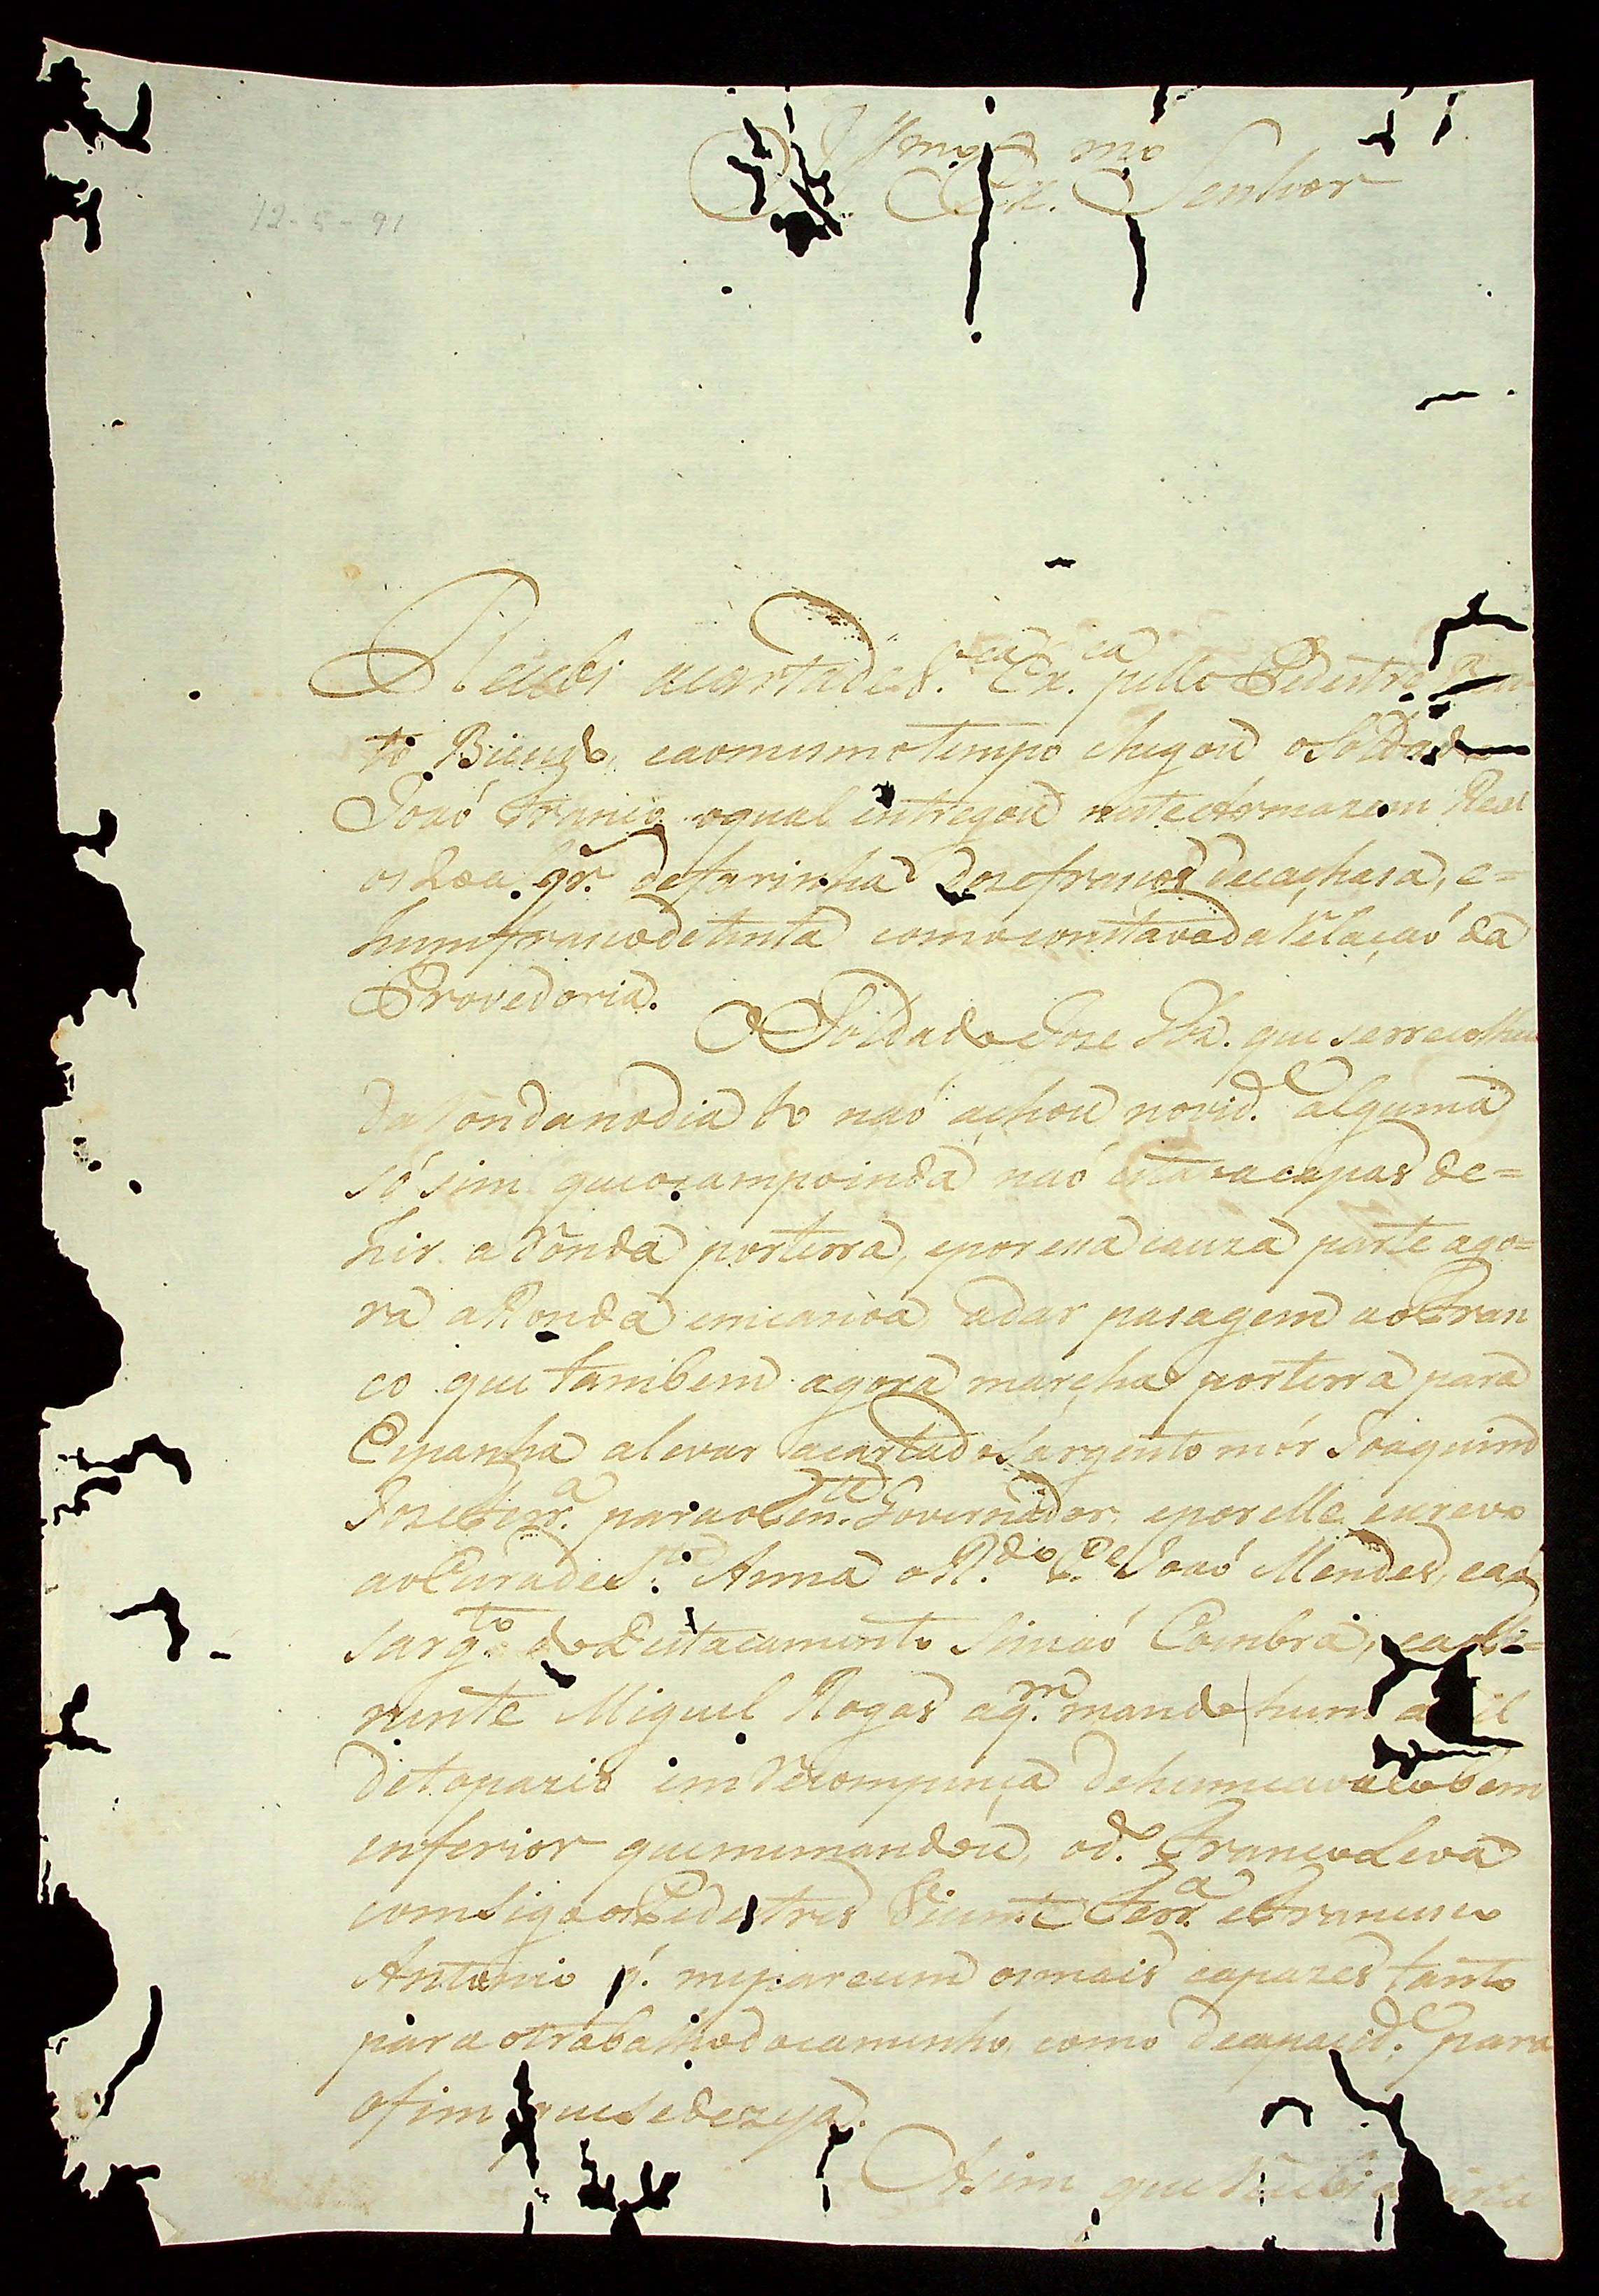 12-5-91
Ill.mo e Ex.mo Senhor
Recebi a carta de S. Ex.ca pello Pedestre
to Bicudo, e ao mesmo tempo chegou o Soldado
Joaó Franco o qual entregou neste Armazem Real
os qr.s de farinha doze frascos de cachasa, e=
hum frasco de tinta como constava da relaçaó da
Provedoria.
O Soldado Joze que se rrecolheu
da Ronda no dia naó achou novid.e alguma
só sim que o campo inda naó estava capas de=
hir a rónda por terra, e por esa cauza parte ago=
ra a Ronda em canoa a dar pasagem ao Fran
co que tambem agora marcha por terra para
Espanha a levar a carta do Sargento mór Joaquim
Joze Ferr.a para o Ten.te Governador, e por elle escrevo
ao Cura de S.ta Anna o R.do P.e Joaó Mendes, e ao
Sarg.to do Destacamento Simaó Coimbra, e ao
nente Miguel Rogas a q.m mando hum
de topazio em recompença de hum cavallo bem
enferior que me mandou, o d.o Franco Leva
comsigo os Pedestres Vicente Ferr.a e Francisco
Antonio p.r me parecem os mais capazes tanto
para o trabalho do caminho, como de capacid.e para
o fim que se dezeja.
Asim que recebi